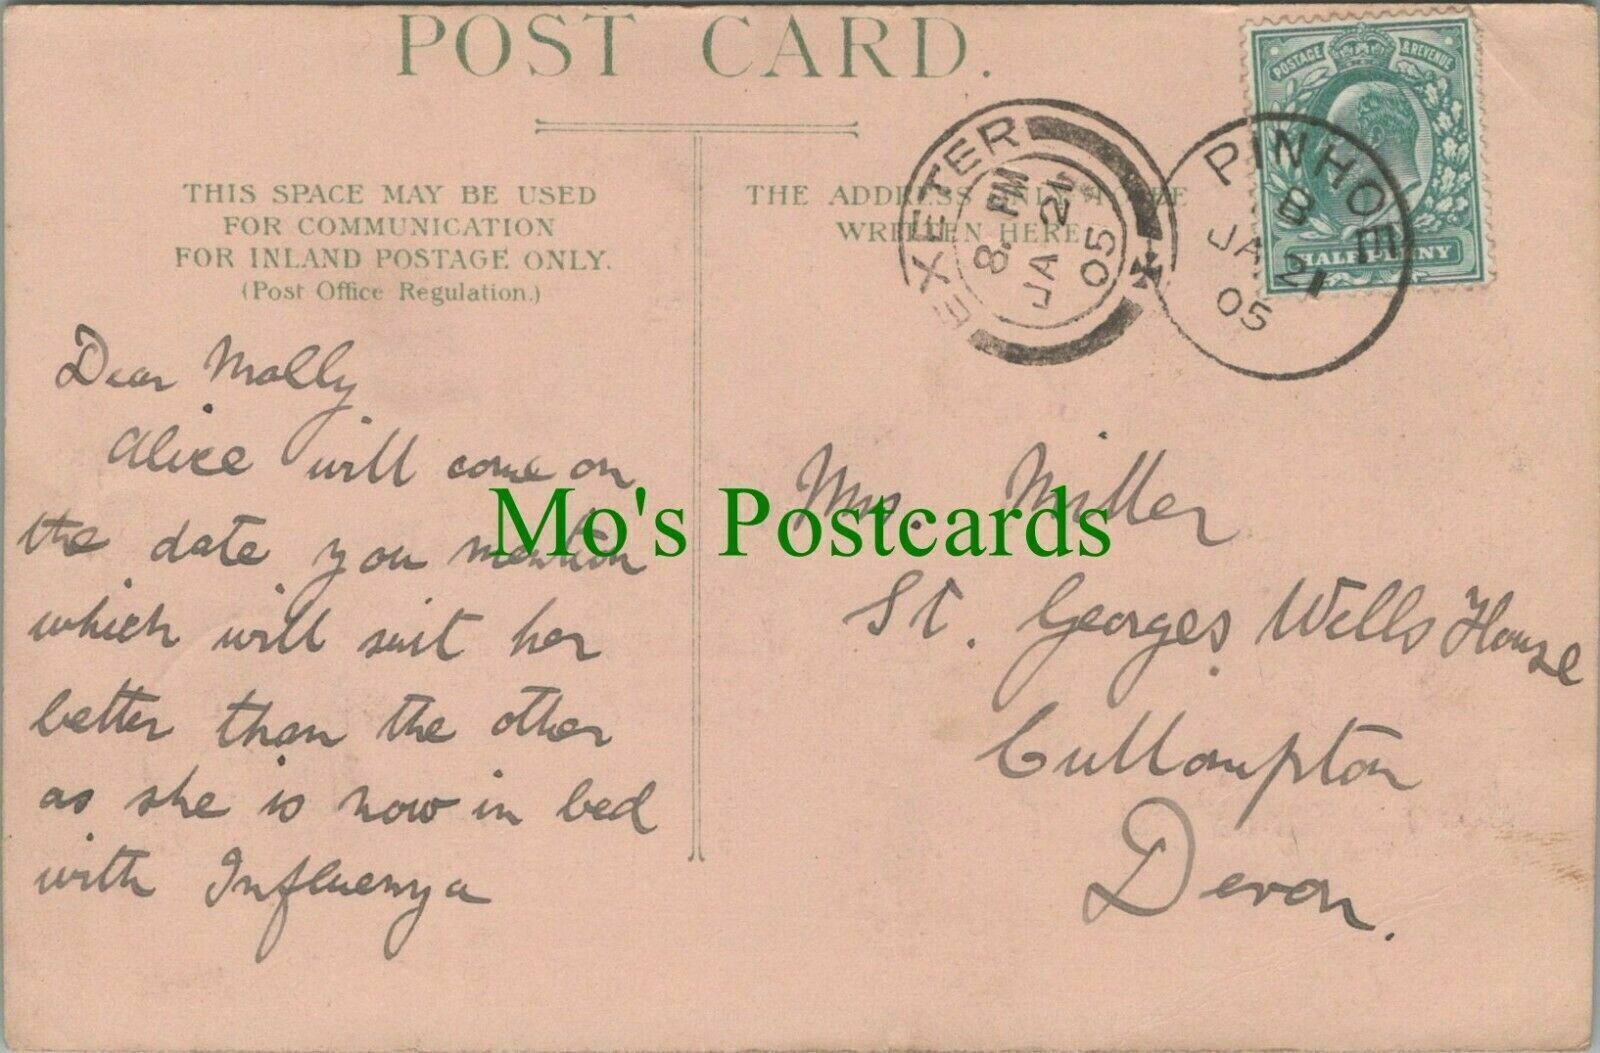 POST CARD.
THIS SPACE MAY BE USED
FOR COMMUNICATION
FOR INLAND POSTAGE ONLY.
(Post Office Regulation.)
Dear Molly
Alice will come on
the date you mention
which will suit her
better than the other
as she is now in bed
with Influenza
THE ADDRESS ONLY TO BE
WRITTEN HERE
EXETER
8. PM
JA 21
05
PINHOE
B
JA 21
05
POSTAGE & REVENUE
HALFPENNY
Mrs. Miller
St. Georges Wells House
Cullompton
Devon.
Mo's Postcards